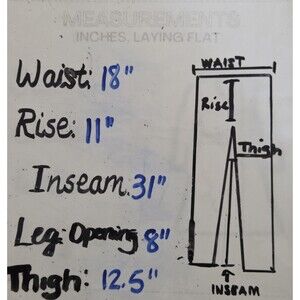 MEASUREMENTS
INCHES, LAYING FLAT
Waist: 18"
Rise: 11"
Inseam 31"
Leg Opening 8"
Thigh: 12.5"
WAIST
Rise
Thigh
INSEAM